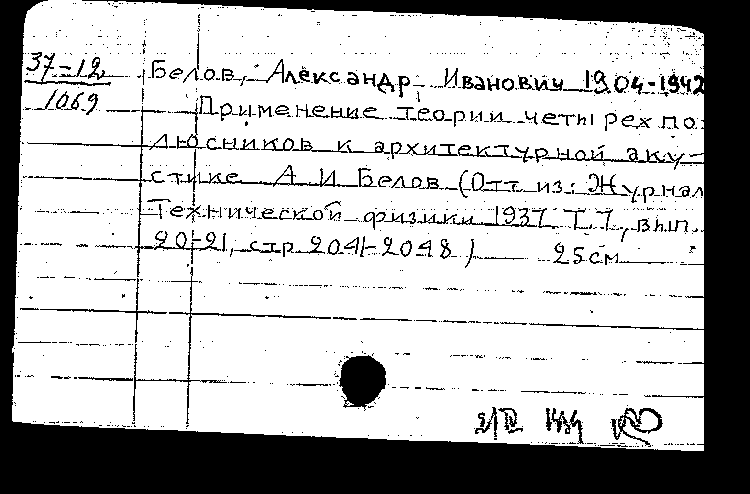 37-12
1069
Белов, Александр Иванович 1904-1942
Применение теории четырехпо-
люсников к архитектурной аку-
стике А И Белов (Отт из: Журнал
Технической физики 1937 Т. 7, вып.
20-21, стр 2041-2048) 25см